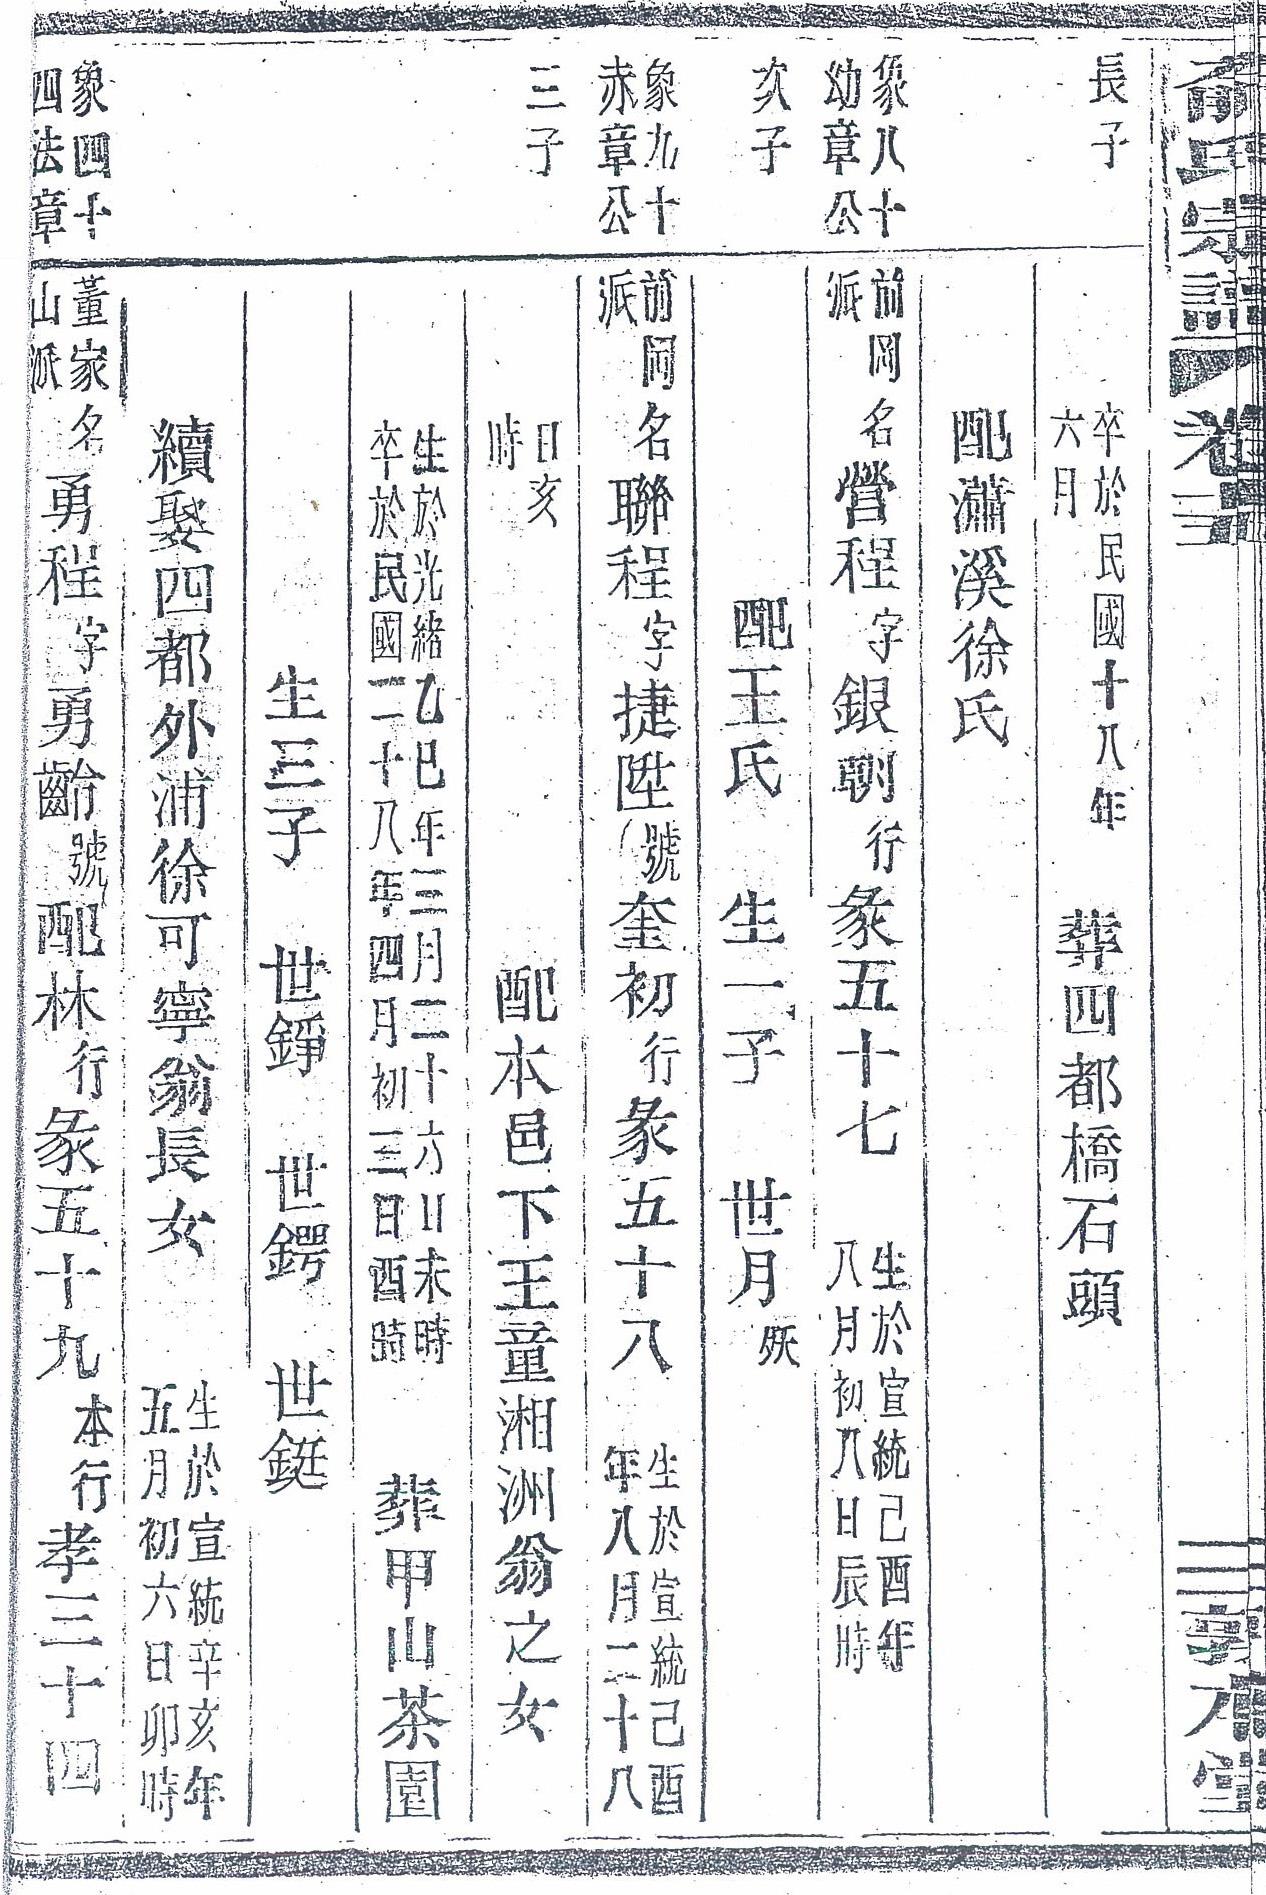 氏宗譜 卷三
敦 堂
長子
卒於民國十八年
六月
葬四都橋石頭
配瀟溪徐氏
象八十
幼章公
前岡
派
名營程字銀朝行彖五十七
生於宣統己酉年
八月初八日辰時
次子
配王氏 生一子 世月 殀
象九十
赤章公
前岡
派
名聯程字捷陞號奎初行彖五十八
生於宣統己酉
年八月二十八
三子
日亥
時
配本邑下王童湘洲翁之女
生於光緒乙巳年三月二十六日未時
卒於民國二十八年四月初三日酉時
葬甲山茶園
生三子 世錚 世鍔 世鋌
續娶四都外浦徐可寧翁長女
生於宣統辛亥年
五月初六日卯時
象四十
四法章
董家
山派
名勇程字勇齡號配林行彖五十九本行孝三十四